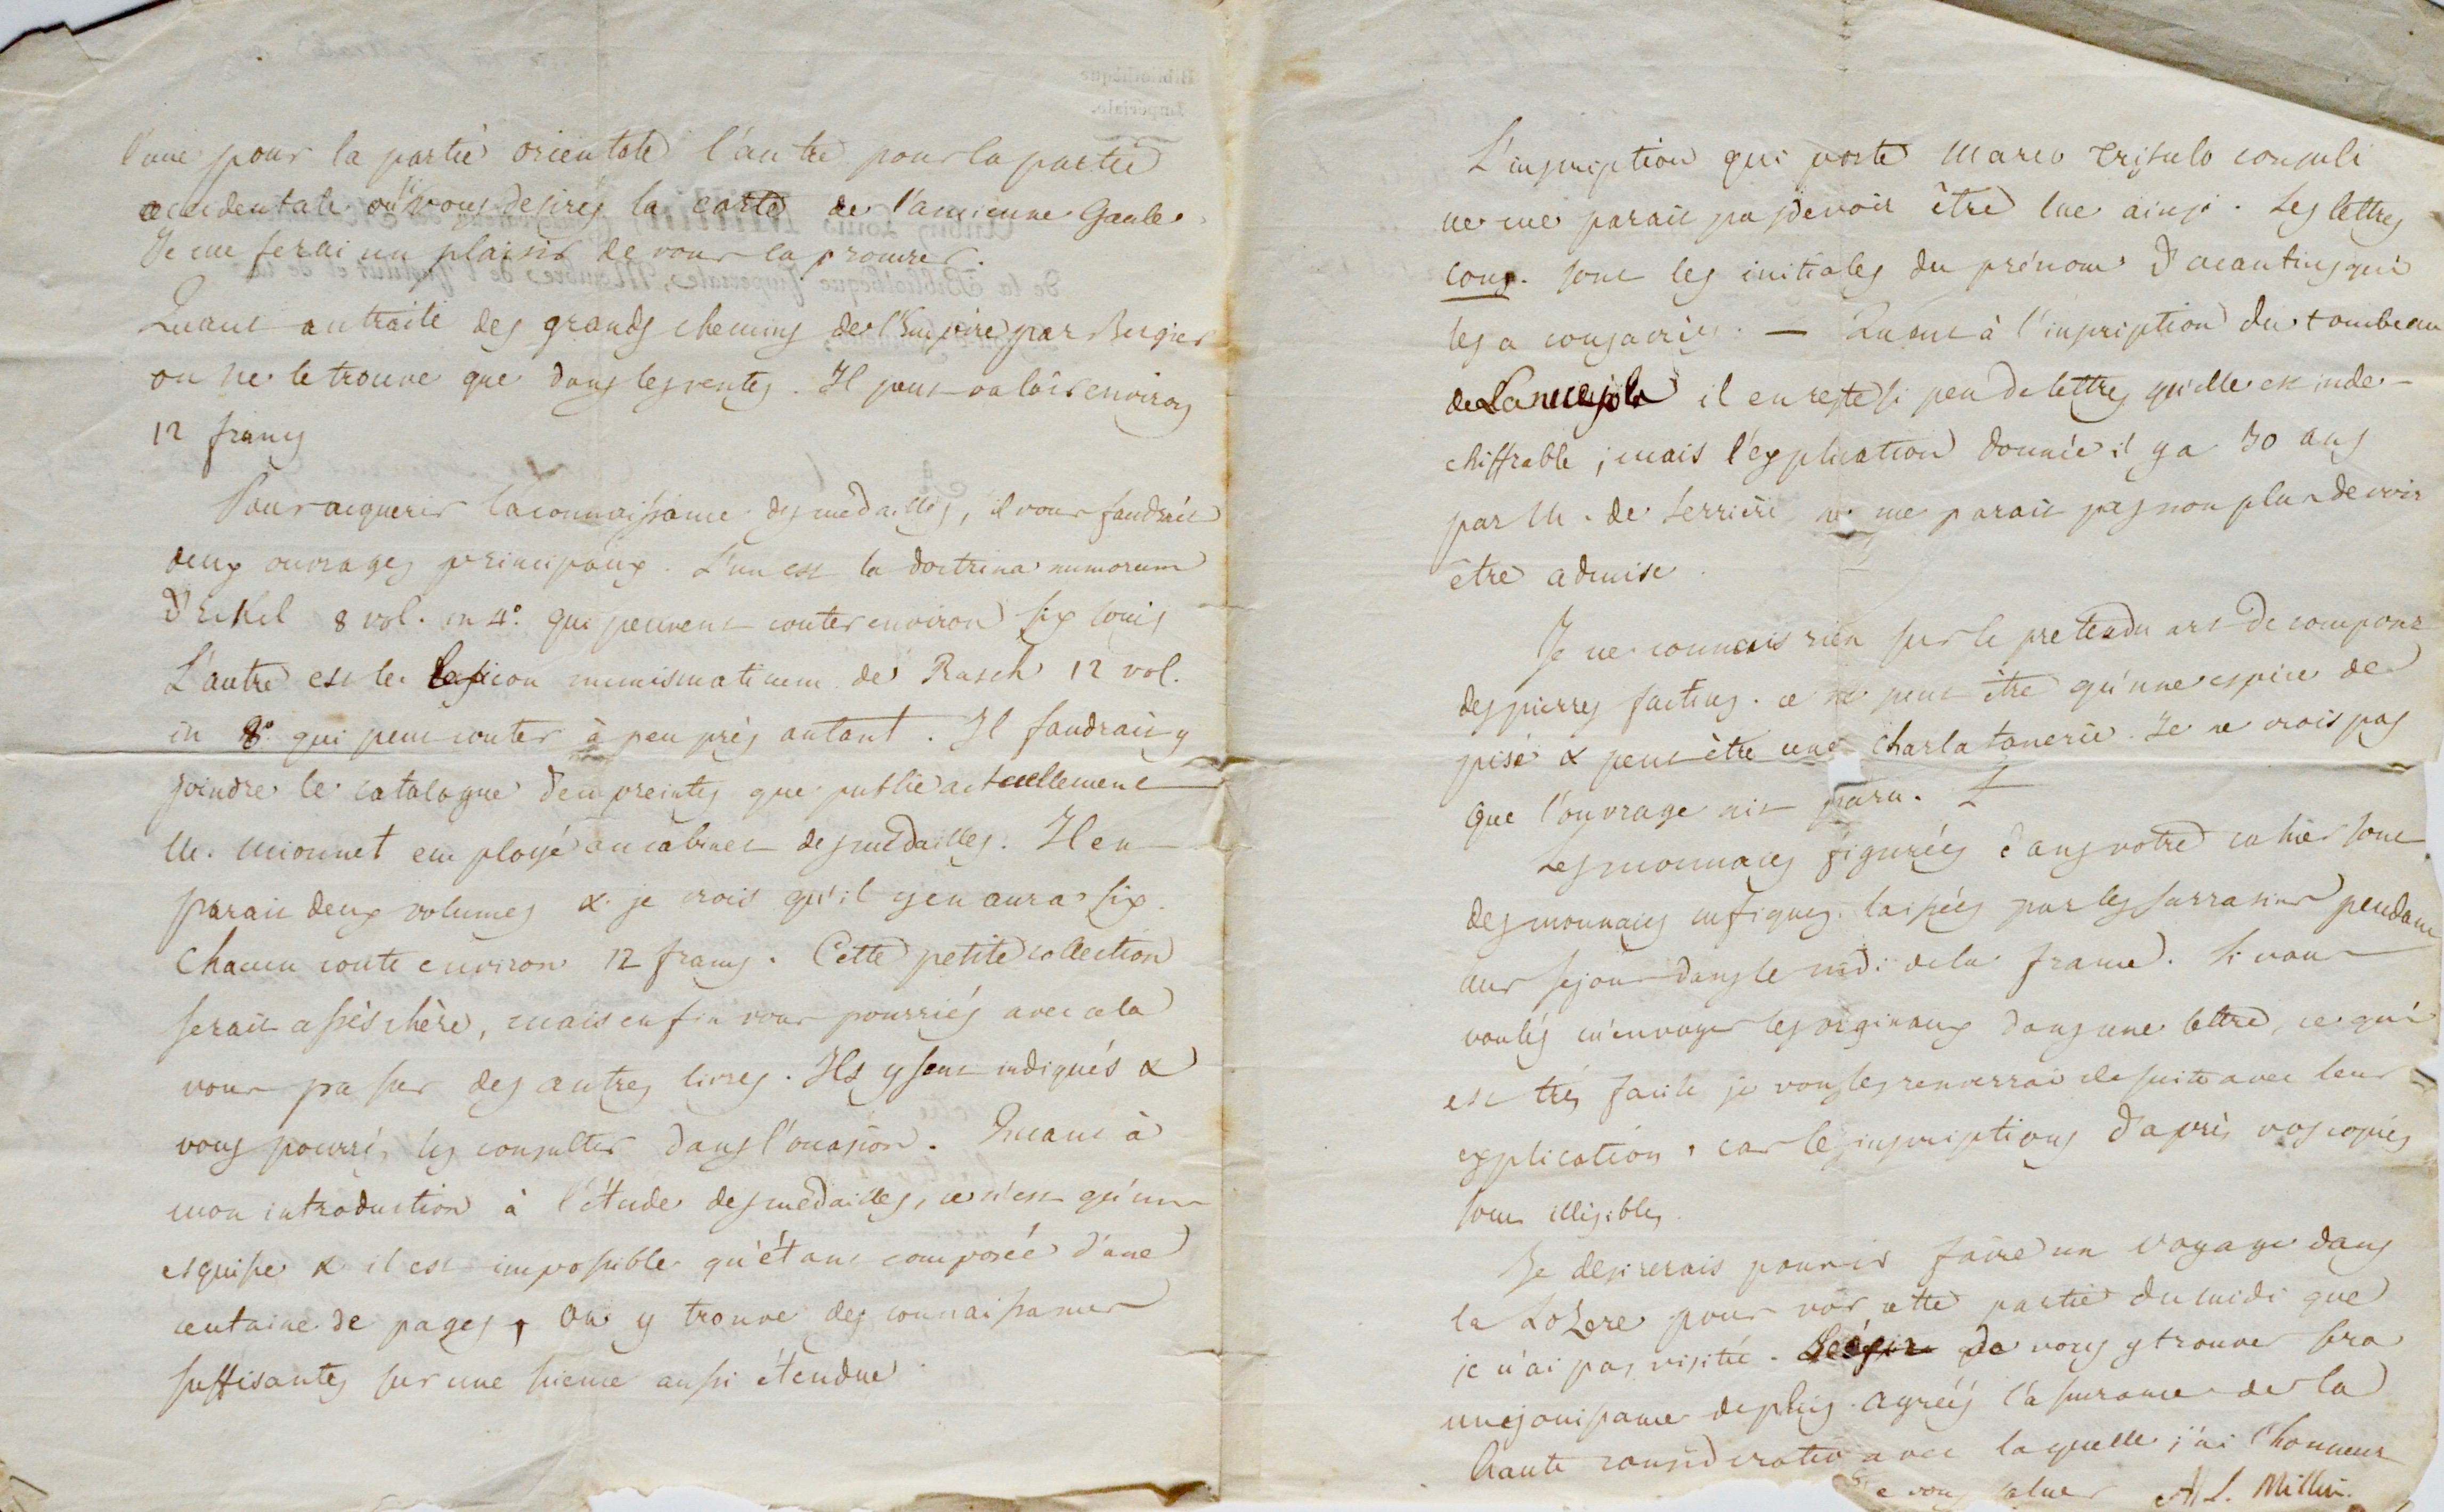 l'une pour la partie orientale l'autre pour la partie
occidentale où vous desirés la carte de l'ancienne Gaule.
Je me ferai un plaisir de vous la procurer.
Quant au traité des grands chemins de l'Empire par Bergier
on ne le trouve que dans les ventes. Il peut valoir environ
12 francs
Pour acquerir la connaissance des médailles, il vous faudrait
deux ouvrages principaux. L'un est la doctrina nummorum
d'Ekel 8 vol. in 4°. qui peuvent couter environ six louis
L'autre est le lexicon numismaticum de Rasch 12 vol.
in 8°. qui peut couter à peu près autant. Il faudrait y
joindre le catalogue d'empreintes que publie actuellement
M. Mionnet employé au cabinet des médailles. Il en
parait deux volumes & je crois qu'il y en aura six.
Chacun coute environ 12 francs. Cette petite collection
serait assès chère, mais enfin vous pourriés avec cela
vous passer des autres livres. Ils y sont indiqués &
vous pourrés les consulter dans l'occasion. Quant à
mon introduction à l'étude des médailles, ce n'est qu'une
esquisse & il est impossible qu'étant composée d'une
centaine de pages, on y trouve des connaissances
suffisantes sur une science aussi étendue.
L'inscription qui porte Marco Trisulo consuli
ne me parait pas devoir être lue ainsi. Les lettres
cons. sont les initiales du prénom d'
les a consacrées. — Quant à l'inscription du tombeau
de Lanuejols il en reste si peu de lettres qu'elle est indé-
chiffrable ; mais l'explication donnée il y a 30 ans
par M. de ne me parait pas non plus devoir
être admise.
Je ne connais rien sur le pretendu art de composer
des pierres factices. ce ne peut être qu'une espèce de
pisé & peut être une charlatanerie. Je ne crois pas
que l'ouvrage ait paru.
Les monnaies figurées dans votre cahier sont
des monnaies cufiques laissées par les sarrasins pendant
leur sejour dans le midi de la france. Si vous
voulés m'envoyer les originaux dans une lettre, ce qui
est très facile je vous les renverrai de suite avec leur
explication, car les inscriptions d'après vos copies
sont illisibles.
Je desirerais pouvoir faire un voyage dans
la Lozere pour voir cette partie du midi que
je n'ai pas visitée. de vous y trouver sera
une jouissance de plus. agréés l'assurance de la
haute consideration avec laquelle j'ai l'honneur
de vous saluer A. L. Millin.
Bibliothèque
Impériale.